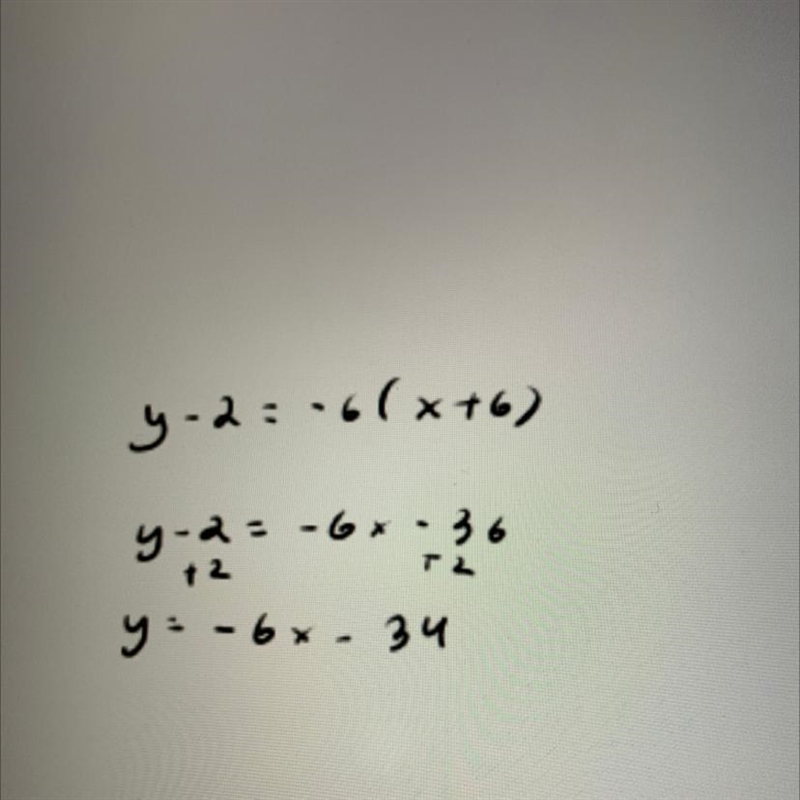 y - 2 = -6(x+6)
y - 2 = -6x - 36
+2 +2
y = -6x - 34